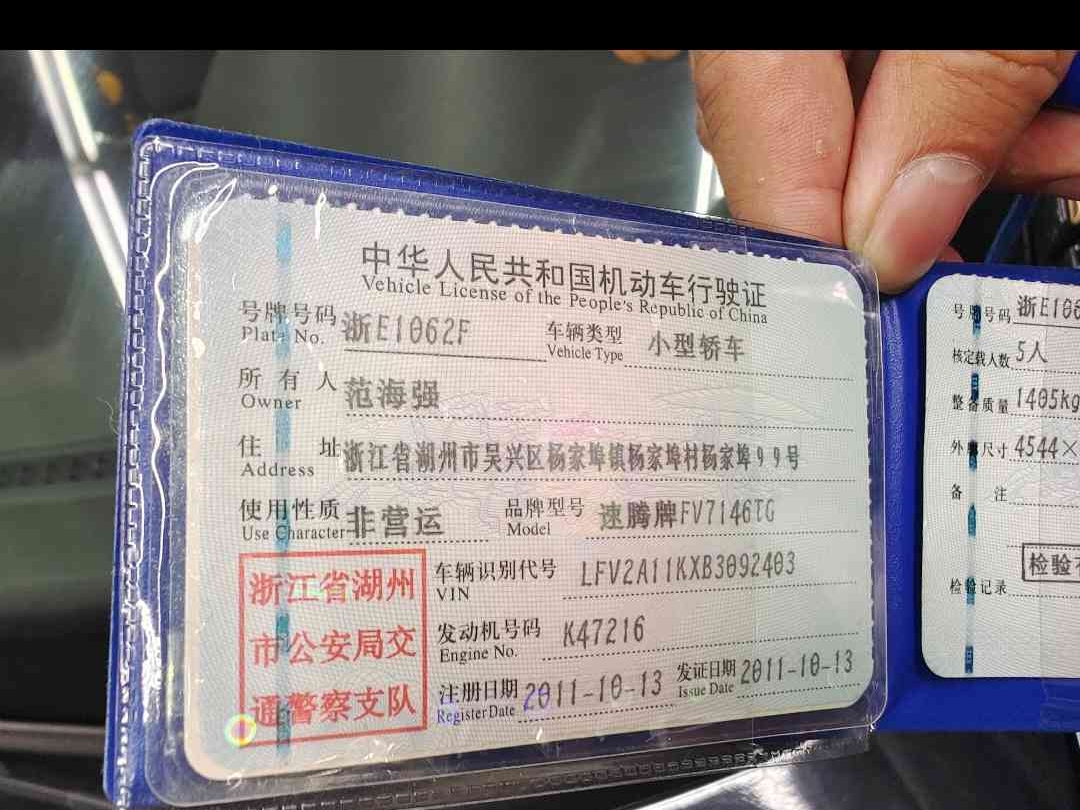 中华人民共和国机动车行驶证
Vehicle License of the People's Republic of China
号牌号码 浙E1062F 车辆类型 小型轿车
Plate No. Vehicle Type
所有人 范海强
Owner
住址 浙江省湖州市吴兴区杨家埠镇杨家埠村杨家埠99号
Address
使用性质 非营运 品牌型号 速腾牌FV7146TG
Use Character Model
浙江省湖州
市公安局交
通警察支队
车辆识别代号 LFV2A11KXB3092403
VIN
发动机号码 K47216
Engine No.
注册日期 2011-10-13 发证日期 2011-10-13
Register Date Issue Date
号牌号码 浙E106
核定载人数 5人
整备质量 1405kg
外廓尺寸 4544×
备注
检验
检验记录